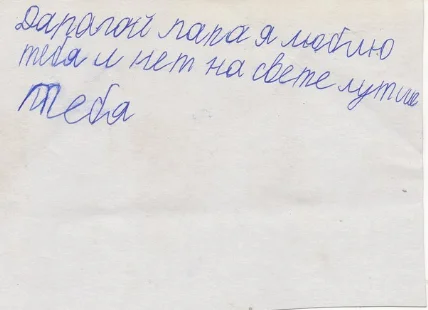 Дарагой папа я люблю
тебя и нет на свете лутше
Тебя